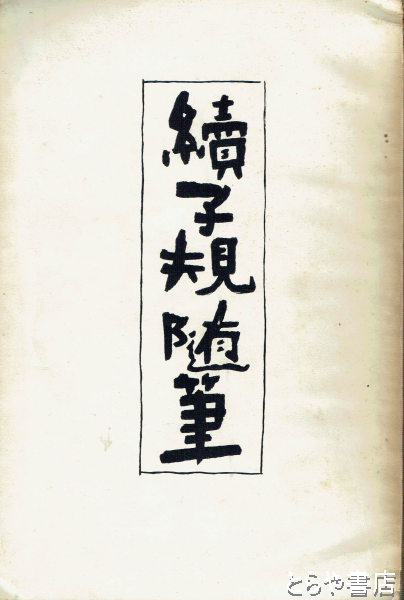 續子規随筆
とらや書店